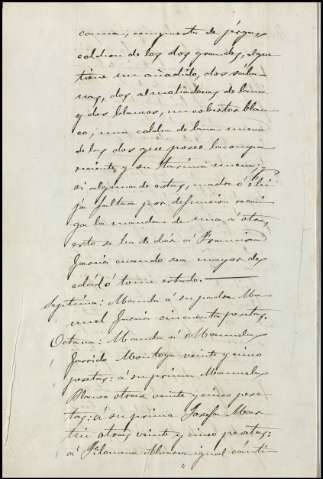 cama, compuesta de jergon
colchon de los dos grandes, el que
tiene un añadido, dos sába-
nas, dos almohadones de lana
y dos blancos, un cobertor blan-
co, una colcha de lana
de las dos que posee la compa-
reciente y su
si alguna de estas, madre ó hi-
ja faltara por defuncion
ga la manda de una á otra,
esta se ha de dar á Francisca
García cuando sea mayor de
edad ó tome estado.
Septima: Manda á su padre Ma-
nuel García cincuenta pesetas.
Octava: Manda á Manuela
Garrido Montoya veinte y cinco
pesetas: á su prima Manuela
Blanco otras veinte y cinco pese-
tas: á su prima Josefa Mar-
tin otras veinte y cinco pesetas:
á igual canti-